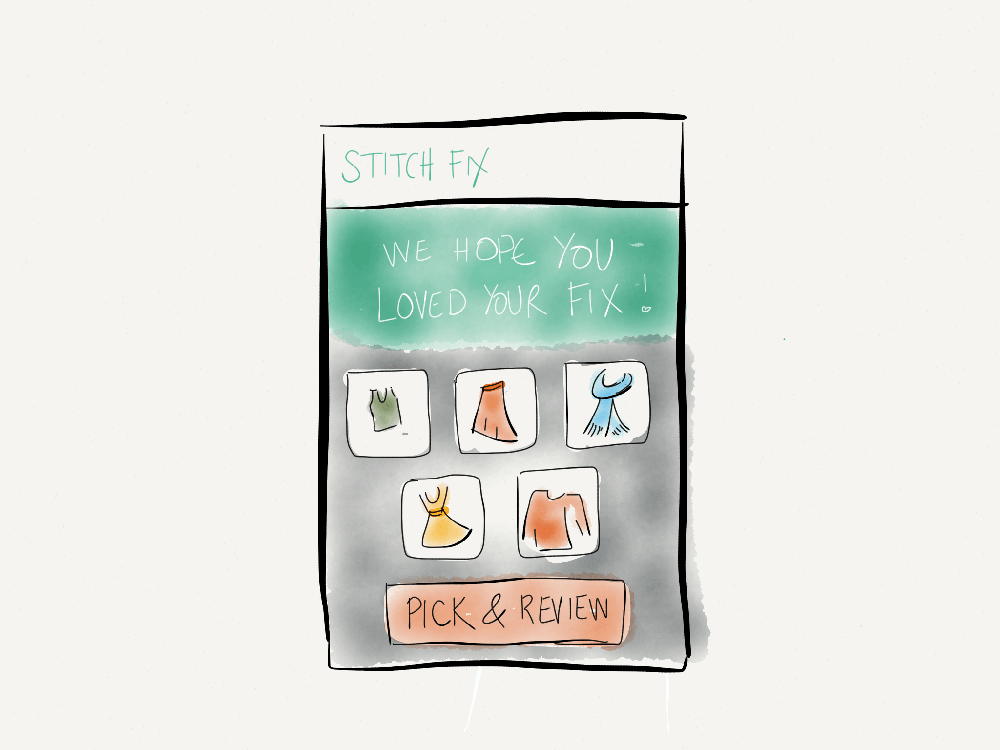 STITCH FIX
WE HOPE YOU
LOVED YOUR FIX !
PICK & REVIEW